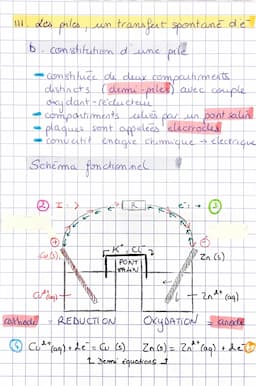 III. Les piles, un transfert spontané d'e⁻
b. constitution d'une pile
- constituée de deux compartiments
distincts (demi-piles) avec couple
oxydant-réducteur
- compartiments reliés par un pont salin
- plaques sont appelées électrodes
- convertit énergie chimique → électrique
Schéma fonctionnel
② I : > R e⁻ : → ③
+ K⁺, Cl⁻ -
Cu (s) PONT SALIN Zn (s)
Cu²⁺ (aq) Zn²⁺ (aq)
cathode = REDUCTION OXYDATION = anode
④ Cu²⁺ (aq) + 2e⁻ = Cu (s) Zn (s) = Zn²⁺ (aq) + 2e⁻
Demi équations